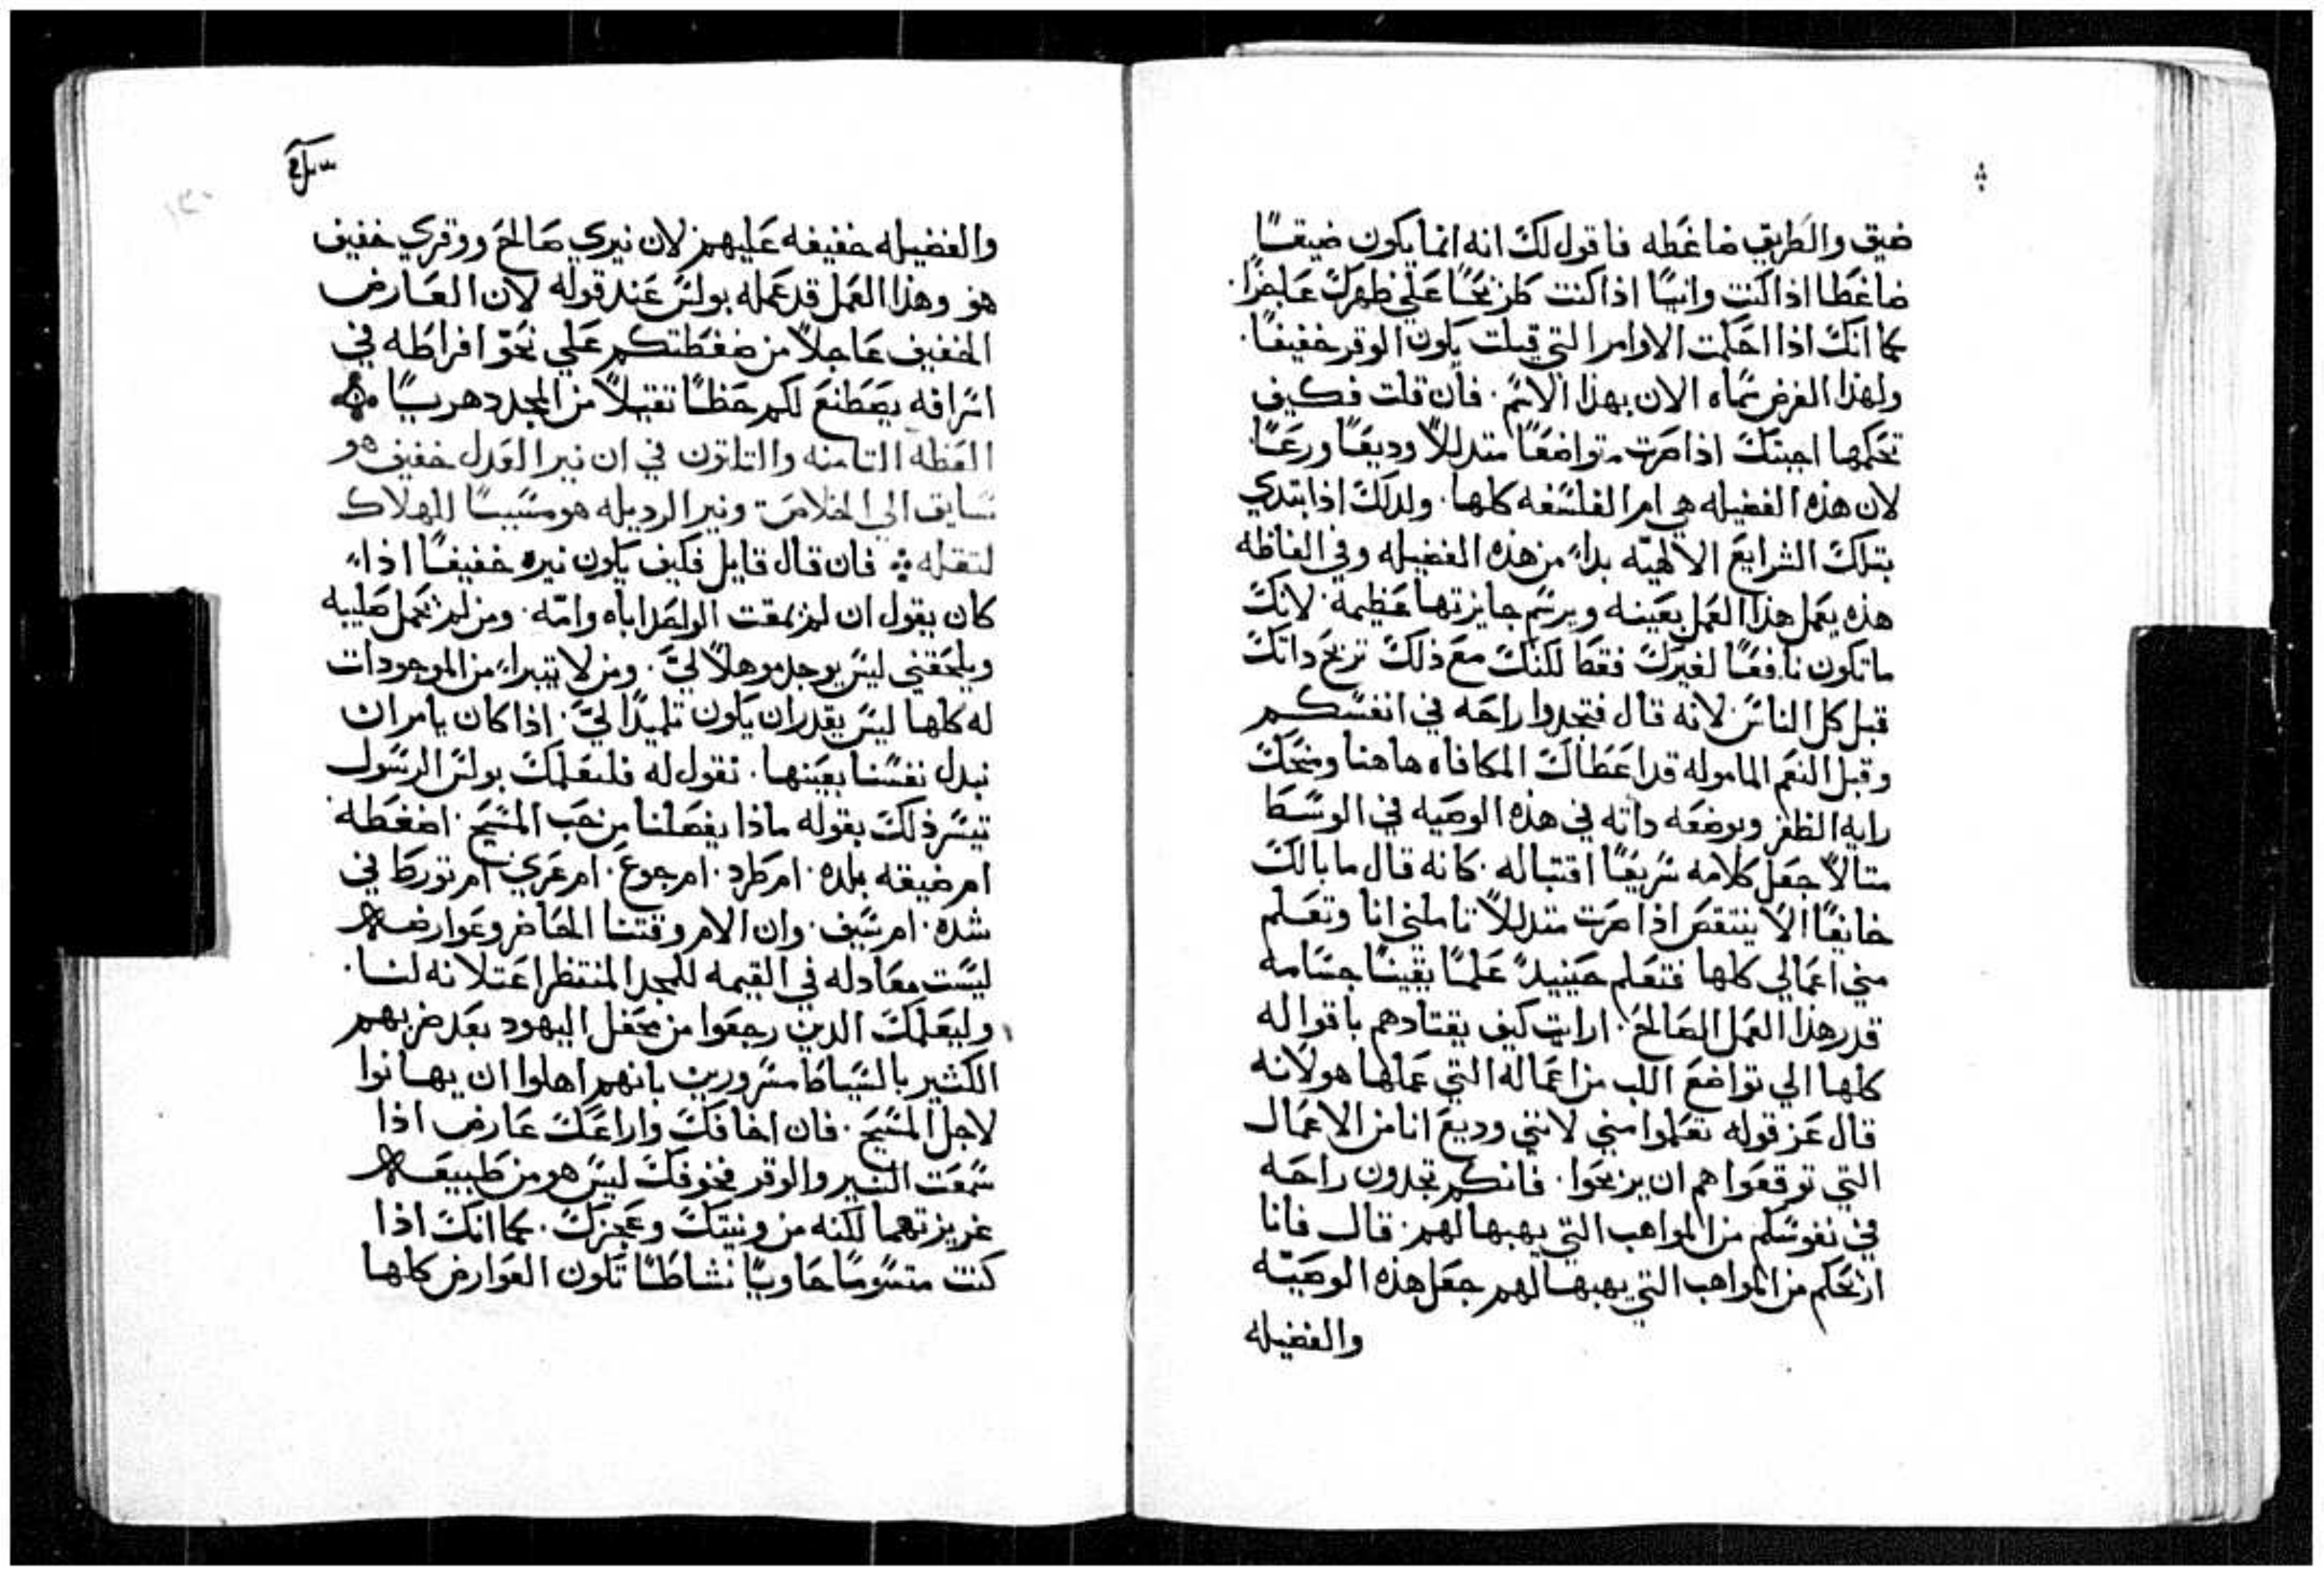 ضيق والطريق ضاغطه فاقول لك انه انما يكون ضيقًا
ضاغطا اذا كنت وانيًا اذا كنت طريحًا على ظهرك عاجزًا.
كما انك اذا احكمت الاوامر التي قيلت يكون الوقر خفيفًا.
ولهذا الغرض سماه الان بهذا الاسم. فان قلت فكيف
تحكمها اجبتك اذا صرت متواضعًا متدللاً وديعًا ورعًا
لان هذه الفضيله هي ام الفلسفه كلها. ولدلك اذا ابتدي
بتلك الشرايع الالهيّه بداء من هذه الفضيله وفي الفاظه
هذه يعمل هذا العمل بعينه ويرسم جايزتها عظيمه. لانك
ما تكون نافعًا لغيرك فقط لكنك مع ذلك تريح داتك
قبل كل الناس لانه قال فتجدوا راحه في انفسكم
وقبل النعم الماموله قد اعطاك المكافاه هاهنا ومنحك
رايه الظفر وبوضعه داته في هذه الوصيه في الوسط
متالاً جعل كلامه سريعًا اقتباله. كانه قال ما بالك
خايفًا الا ينتقص اذا صرت متدللاً تاملني انا وتعلم
مني اعمالي كلها فتعلم حينيدً علمًا يقينًا جسامه
قدر هذا العمل الصالح. ارايت كيف يقتادهم باقواله
كلها الي تواضع اللب من اعماله التي عملها هو لانه
قال عز قوله تعلموا مني لانني وديع انا من الاعمال
التي توقعوا هم ان يربحوا. فانكم تجدون راحه
في نفوسكم من المواهب التي يهبها لهم. قال فانا
اريحكم من المواهب التي يهبها لهم جعل هذه الوصيّه
والفضيله
والفضيله خفيفه عليهم لان نيري صالح ووقري خفيف
هو وهذا العمل قد عمله بولس عند قوله لان العارض
الخفيف عاجلاً من ضغطتكم علي نحوّ افراطه في
اسرافه يصطنع لكم حظًا تقيلاً من المجد دهريًا
العظه التامنه والتلتون في ان نير العدل خفيف هو
سايق الي الخلاص ونير الرديله هو مسببًا للهلاك
لتقله فان قال قايل فكيف يكون نيره خفيفًا اذاء
كان يقول ان لم يمقت الواحد اباه وامّه. ومن لم يحمل صليبه
ويلحقني ليس يوجد موهلاً ليّ. ومن لا يتبراء من الموجودات
له كلها ليس يقدر ان يكون تلميدًا ليّ. اذا كان يامر ان
نبدل نفسنا بعينها. نقول له فليعلمك بولس الرسول
تيسر ذلك بقوله ماذا يفصلنا من حب المسيح. اضغطه
ام ضيقه بلده. ام طرد. ام جوع. ام عري ام تورط في
شده. ام سيف. وان الام وقتنا الحاضر وعوارضه
ليست معادله في القيمه للمجد المنتظر اعتلانه لنا.
وليعلمك الدين رجعوا من محفل اليهود بعد ضربهم
الكثير بالسياط مسرورين بانهم اهلوا ان يهانوا
لاجل المسيح. فان اخافك واراعك عارض اذا
سمعت النير والوقر فخوفك ليس هو من طبيعه
غريزتهما لكنه من ونيتك وعجزك. كما انك اذا
كنت متسومًا حاويًا نشاطًا تكون العوارض كلها